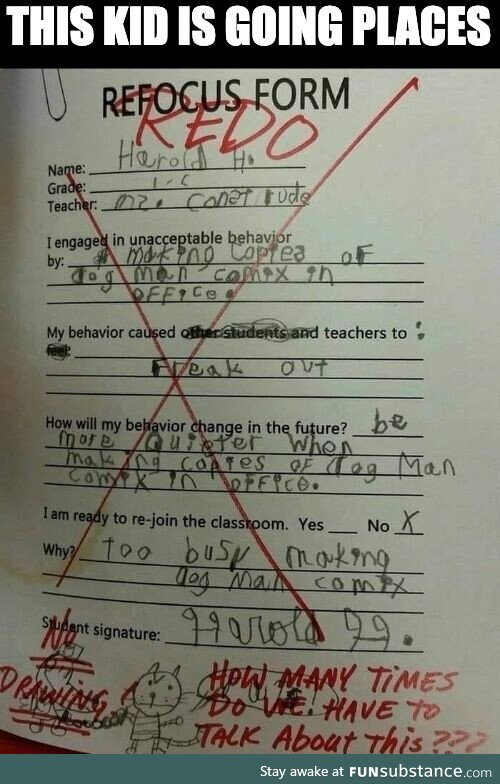 THIS KID IS GOING PLACES
REFOCUS FORM
REDO
Name: Harold H.
Grade:
Teacher: mr. Construde
I engaged in unacceptable behavior
by: making copies of
dog man comix in
office.
My behavior caused other students and teachers to :
feel:
Freak out
How will my behavior change in the future? be
more quieter when
making copies of dog Man
comix in office.
I am ready to re-join the classroom. Yes ___ No X
Why? too busy making
dog Man comix
Student signature: Harold H.
NO
DRAWING
HOW MANY TIMES
DO WE HAVE TO
TALK About This???
Stay awake at FUNsubstance.com